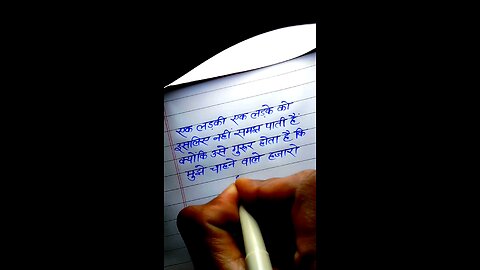 एक लड़की एक लड़के को
इसलिए नहीं समझ पाती हैं
क्योंकि उसे गुरुर होता है कि
मुझे चाहने वाले हजारो